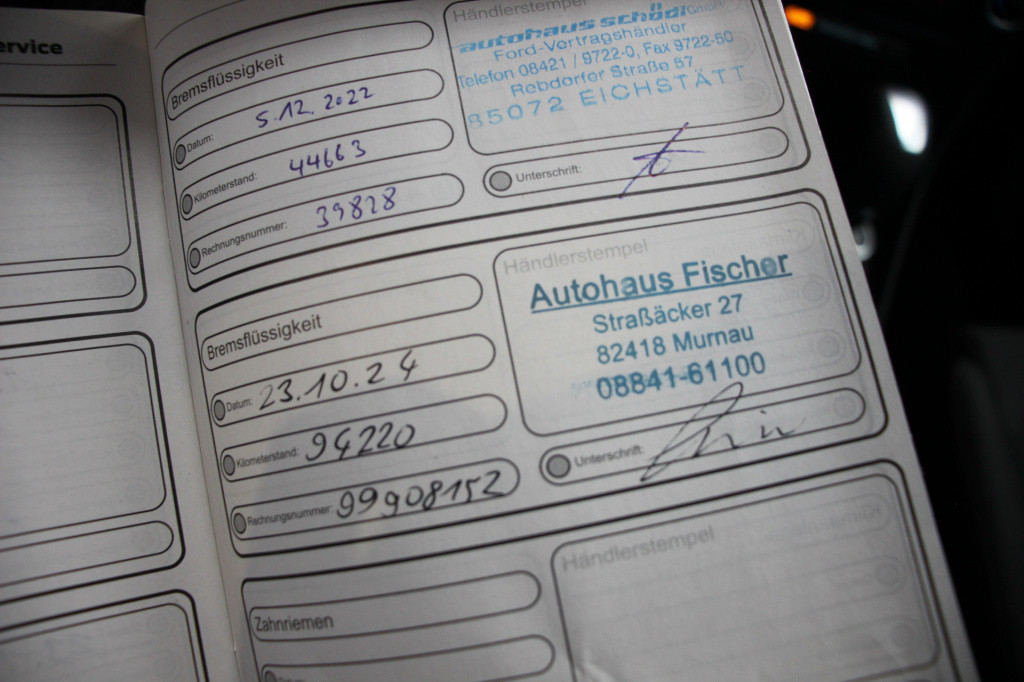 ervice
Bremsflüssigkeit
Datum: 5.12.2022
Kilometerstand: 44663
Rechnungsnummer: 39828
Händlerstempel
autohaus schödl GmbH
Ford-Vertragshändler
Telefon 08421 / 9722-0, Fax 9722-60
Rebdorfer Straße 57
85072 EICHSTÄTT
Unterschrift:
Bremsflüssigkeit
Datum: 23.10.24
Kilometerstand: 94220
Rechnungsnummer: 99908152
Händlerstempel
Autohaus Fischer
Straßäcker 27
82418 Murnau
08841-61100
Unterschrift:
Zahnriemen
Händlerstempel